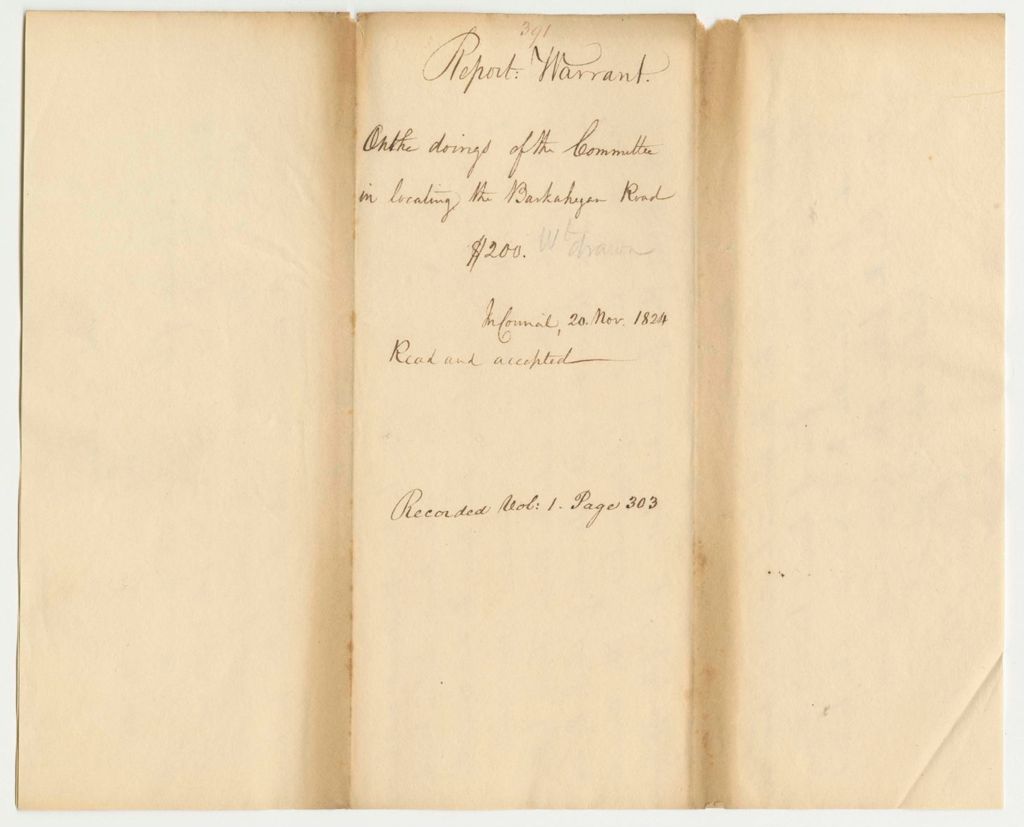 391
Report: Warrant.
On the doings of the Committee
in locating the Barkahegan Road
$200. Wt drawn
In Council, 20. Nov. 1824
Read and accepted
Recorded Vol: 1. Page 303